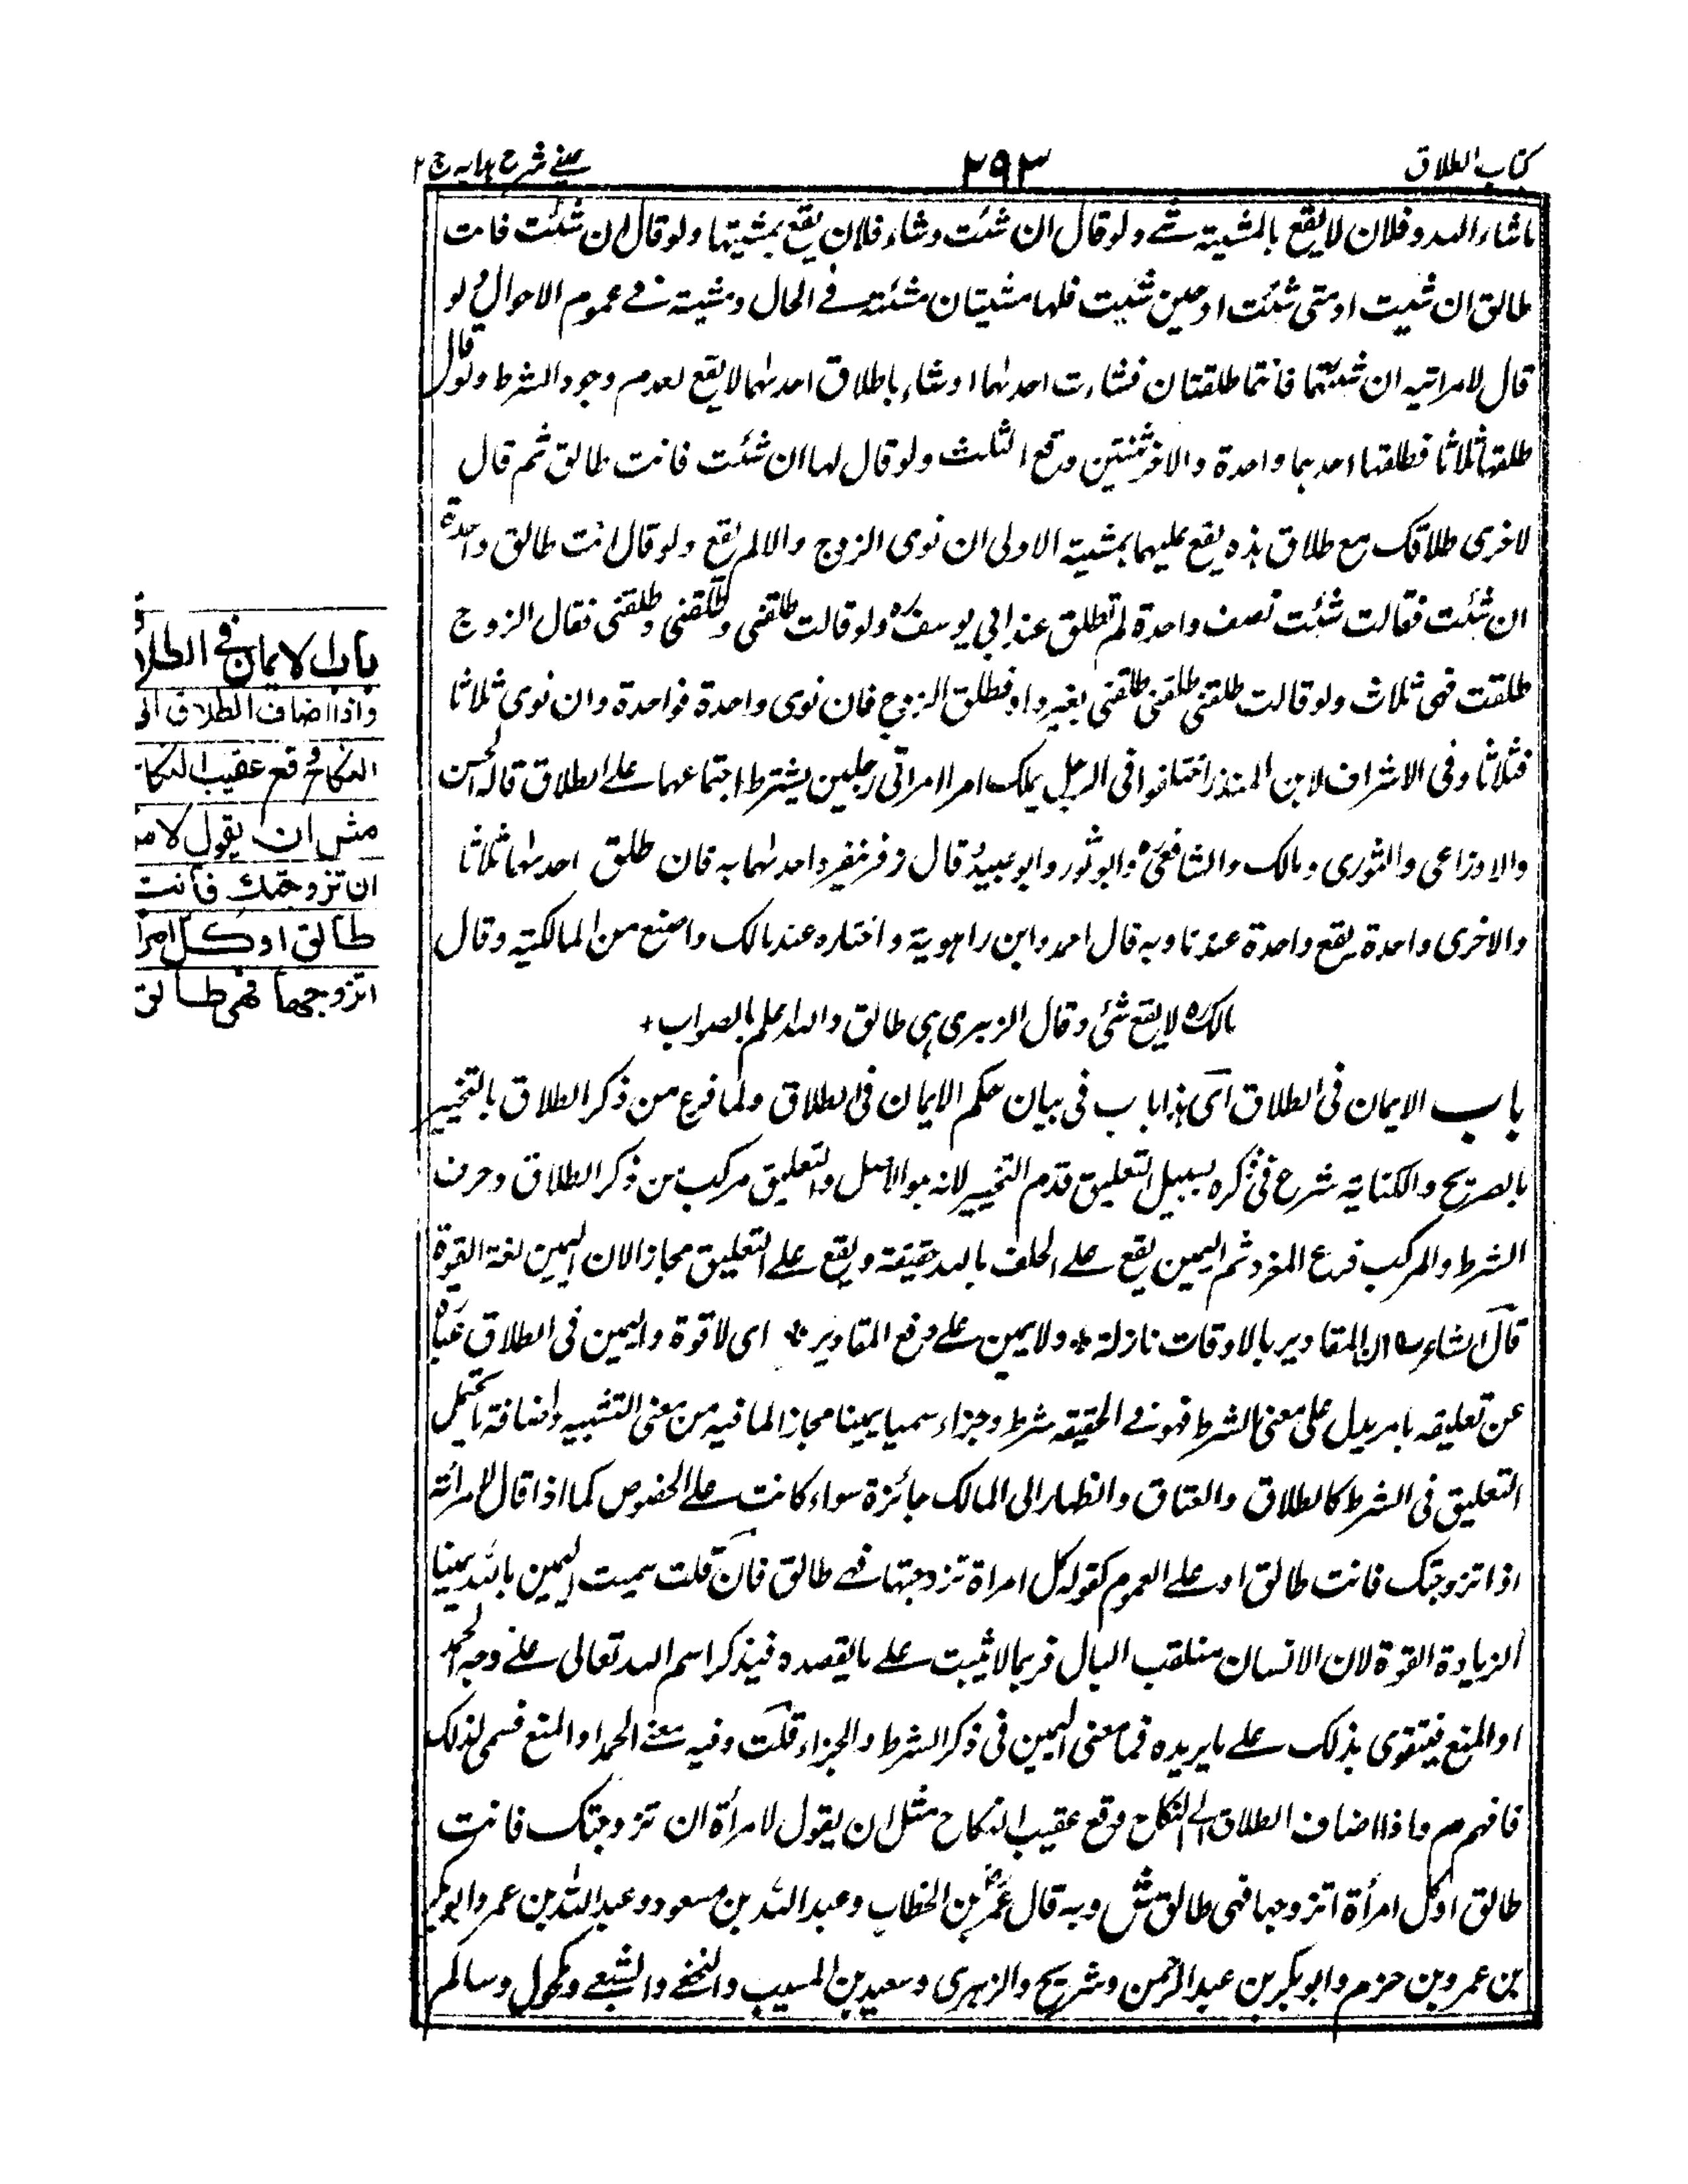 كتاب الطلاق
۲۹۳
عینے شرح ہدایہ ج ۲
ما شاء اللہ وفلان لا یقع بالمشیتہ شے ولو قال ان شئت وشاء فلان یقع بمشیتہا ولو قال ان شئت فانت
طالق ان شیت او متی شئت او حین شیت فلہا مشیتان مشئتہ فے الحال ومشیتہ فے عموم الاحوال ولو
قال لامراتیہ ان شیتما فانتما طلقتان فشاءت احدٰہما او شاء باطلاق احدٰہما لا یقع لعدم وجود الشرط ولو قال
طلقہا ثلاثا فطلقہا احدہما واحدة والاخر ثنتین وقع الثلث ولو قال لہا ان شئت فانت طالق ثم قال
لاخری طلاقک مع طلاق ہذہ یقع علیہما بمشیتہ الاولی ان نوی الزوج والا لم یقع ولو قال انت طالق واحدة
ان شئت فقالت شئت نصف واحدة لم تطلق عند ابی یوسف رہ ولو قالت طلقنی وطلقنی وطلقنی فقال الزوج
طلقت فہی ثلاث ولو قالت طلقنی طلقنی طلقنی بغیر واو فطلق الزوج فان نوی واحدة فواحدة وان نوی ثلاثا
فثلاثا وفی الاشراف لابن المنذر اختلفوا فی الرجل یملک امر امراتی رجلین یشترط اجتماعہما علے الطلاق قالہ الحسن
والاوزاعی والثوری ومالک والشافعی رہ وابو ثور وابو عبید وقال زفر ینفرد احدٰہما بہ فان طلق احدٰہما ثلاثا
والاخری واحدة یقع واحدة عندنا وبہ قال احمد وابن راہویة واختارہ عند مالک واصبغ من المالکیتہ وقال
مالک رہ لا یقع شئ وقال الزہری ہی طالق واللہ اعلم بالصواب +
باب الایمان فی الطلاق ای ہذا باب فی بیان حکم الایمان فی الطلاق ولما فرغ من ذکر الطلاق بالتخییر
بالصریح والکنایتہ شرع فی ذکرہ بسبیل التعلیق قدم التخییر لانہ ہو الاصل والتعلیق مرکب من ذکر الطلاق وحرف
الشرط والمرکب فرع المفرد ثم الیمین یقع علے الحلف باللہ حقیقة ویقع علے التعلیق مجازا لان الیمین لغة القوة
قال الشاعر ان المقادیر بالاوقات نازلة + ولا یمین علے دفع المقادیر + ای لا قوة والیمین فی الطلاق عبارة
عن تعلیقہ بامر یدل علی معنی الشرط فہو فے الحقیقہ شرط وجزاء سمیا یمینا مجازا لما فیہ من معنی التشبیہ واضافة ما یحتمل
التعلیق فی الشرط کالطلاق والعتاق والظہار الی المالک جائزة سواء کانت علے الخصوص کما اذا قال لامرائتہ
اذا تزوجتک فانت طالق او علے العموم کقولہ کل امراة تزوجتہا فہے طالق فان قلت سمیت الیمین باللہ یمینا
الزیادة القوة لان الانسان منقلب البال فربما لا یثبت علے ما یقصدہ فیذکر اسم اللہ تعالی علے وجہ الحمد
او المنع فیتقوی بذلک علے ما یریدہ فما معنی الیمین فی ذکر الشرط والجزاء قلت وفیہ معنے الحمد او المنع فسمی لذلک
فافہم م واذا اضاف الطلاق الے النکاح وقع عقیب النکاح مثل ان یقول لامرأة ان تزوجتک فانت
طالق او کل امرأة اتزوجہا فہی طالق ش وبہ قال عمر رض بن الخطاب وعبد اللہ بن مسعود وعبد اللہ بن عمر وابو بکر
بن عمرو بن حزم وابو بکر بن عبد الرحمن وشریح والزہری وسعید بن المسیب والنخعے والشبعے ومکحول وسالم
باب الايمان فى الطلا
واذا اضاف الطلاق الى
النكاح وقع عقيب النكا
مثل ان يقول لامر
ان تزوجتك فأنت
طالق او كل امرا
اتزوجها فهى طالق